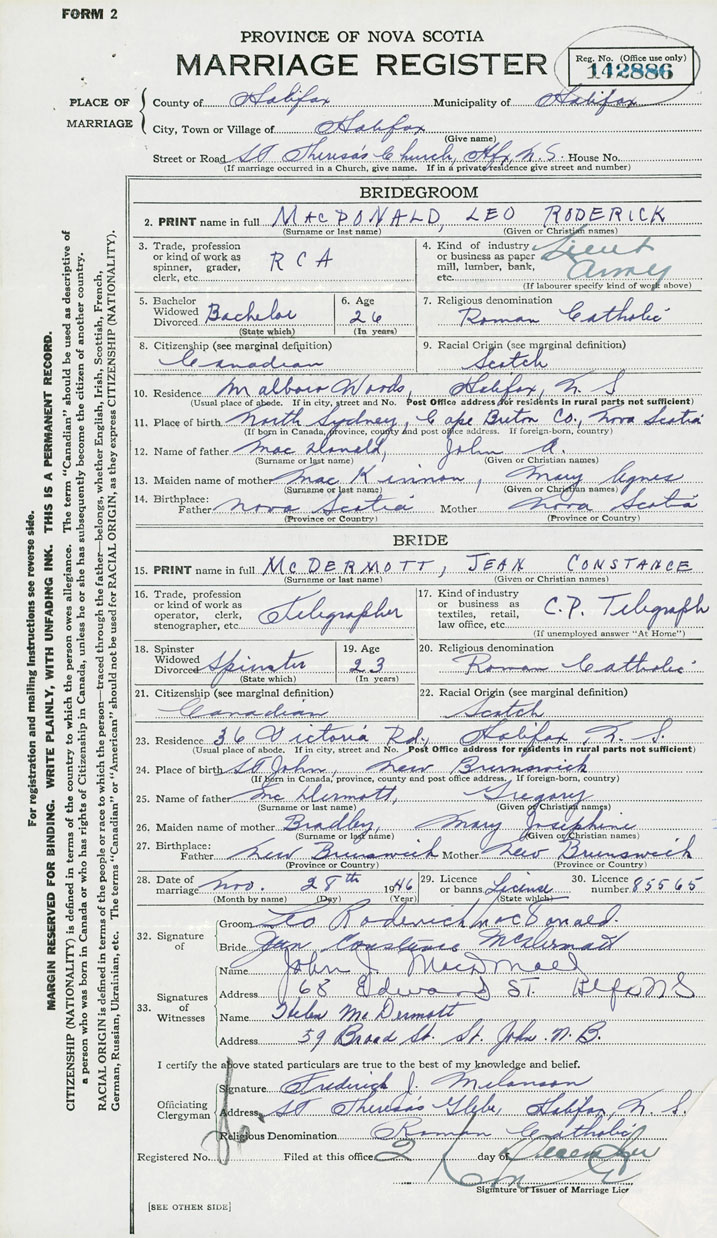 FORM 2
PROVINCE OF NOVA SCOTIA
MARRIAGE REGISTER
Reg. No. (Office use only)
142886
PLACE OF MARRIAGE
County of Halifax Municipality of Halifax
City, Town or Village of Halifax
(Give name)
Street or Road St Theresa's Church, Hfx, N.S. House No.
(If marriage occurred in a Church, give name. If in a private residence give street and number)
BRIDEGROOM
2. PRINT name in full MACDONALD, LEO RODERICK
(Surname or last name) (Given or Christian names)
3. Trade, profession or kind of work as spinner, grader, clerk, etc. RCA
4. Kind of industry or business as paper mill, lumber, bank, etc. Lieut Army
(If labourer specify kind of work above)
5. Bachelor Widowed Divorced Bachelor (State which)
6. Age 26 (In years)
7. Religious denomination Roman Catholic
8. Citizenship (see marginal definition) Canadian
9. Racial Origin (see marginal definition) Scotch
10. Residence Malboro Woods, Halifax, N. S
(Usual place of abode. If in city, street and No. Post Office address for residents in rural parts not sufficient)
11. Place of birth North Sydney, Cape Breton Co., Nova Scotia
(If born in Canada, province, county and post office address. If foreign-born, country)
12. Name of father MacDonald, John A.
(Surname or last name) (Given or Christian names)
13. Maiden name of mother MacKinnon, Mary Agnes
(Surname or last name) (Given or Christian names)
14. Birthplace: Father Nova Scotia Mother Nova Scotia
(Province or Country) (Province or Country)
BRIDE
15. PRINT name in full MCDERMOTT, JEAN CONSTANCE
(Surname or last name) (Given or Christian names)
16. Trade, profession or kind of work as operator, clerk, stenographer, etc. Telegrapher
17. Kind of industry or business as textiles, retail, law office, etc. C.P. Telegraph
(If unemployed answer "At Home")
18. Spinster Widowed Divorced Spinster (State which)
19. Age 23 (In years)
20. Religious denomination Roman Catholic
21. Citizenship (see marginal definition) Canadian
22. Racial Origin (see marginal definition) Scotch
23. Residence 36 Victoria Rd., Halifax, N. S.
(Usual place of abode. If in city, street and No. Post Office address for residents in rural parts not sufficient)
24. Place of birth St John, New Brunswick
(If born in Canada, province, county and post office address. If foreign-born, country)
25. Name of father McDermott, Gregory
(Surname or last name) (Given or Christian names)
26. Maiden name of mother Bradley, Mary Josephine
(Surname or last name) (Given or Christian names)
27. Birthplace: Father New Brunswick Mother New Brunswick
(Province or Country) (Province or Country)
28. Date of marriage Nov. 28th 1946
(Month by name) (Day) (Year)
29. Licence or banns License (State which)
30. Licence number 85565
32. Signature of
Groom Leo Roderick MacDonald.
Bride Jean Constance McDermott
33. Signatures of Witnesses
Name John J.
Address 68 Edward St. Hfx NS
Name Helen McDermott
Address 59 Broad St. St. John. N.B.
I certify the above stated particulars are true to the best of my knowledge and belief.
Officiating Clergyman
Signature Frederick J. Melanson
Address St Theresa's Glebe, Halifax, N. S.
Religious Denomination Roman Catholic
Registered No. Filed at this office 2 day of December
Signature of Issuer of Marriage Lic
[SEE OTHER SIDE]
For registration and mailing Instructions see reverse side.
MARGIN RESERVED FOR BINDING. WRITE PLAINLY, WITH UNFADING INK. THIS IS A PERMANENT RECORD.
CITIZENSHIP (NATIONALITY) is defined in terms of the country to which the person owes allegiance. The term "Canadian" should be used as descriptive of
a person who was born in Canada or who has rights of Citizenship in Canada, unless he or she has subsequently become the citizen of another country.
RACIAL ORIGIN is defined in terms of the people or race to which the person—traced through the father—belongs, whether English, Irish, Scottish, French,
German, Russian, Ukrainian, etc. The terms "Canadian" or "American" should not be used for RACIAL ORIGIN, as they express CITIZENSHIP (NATIONALITY).